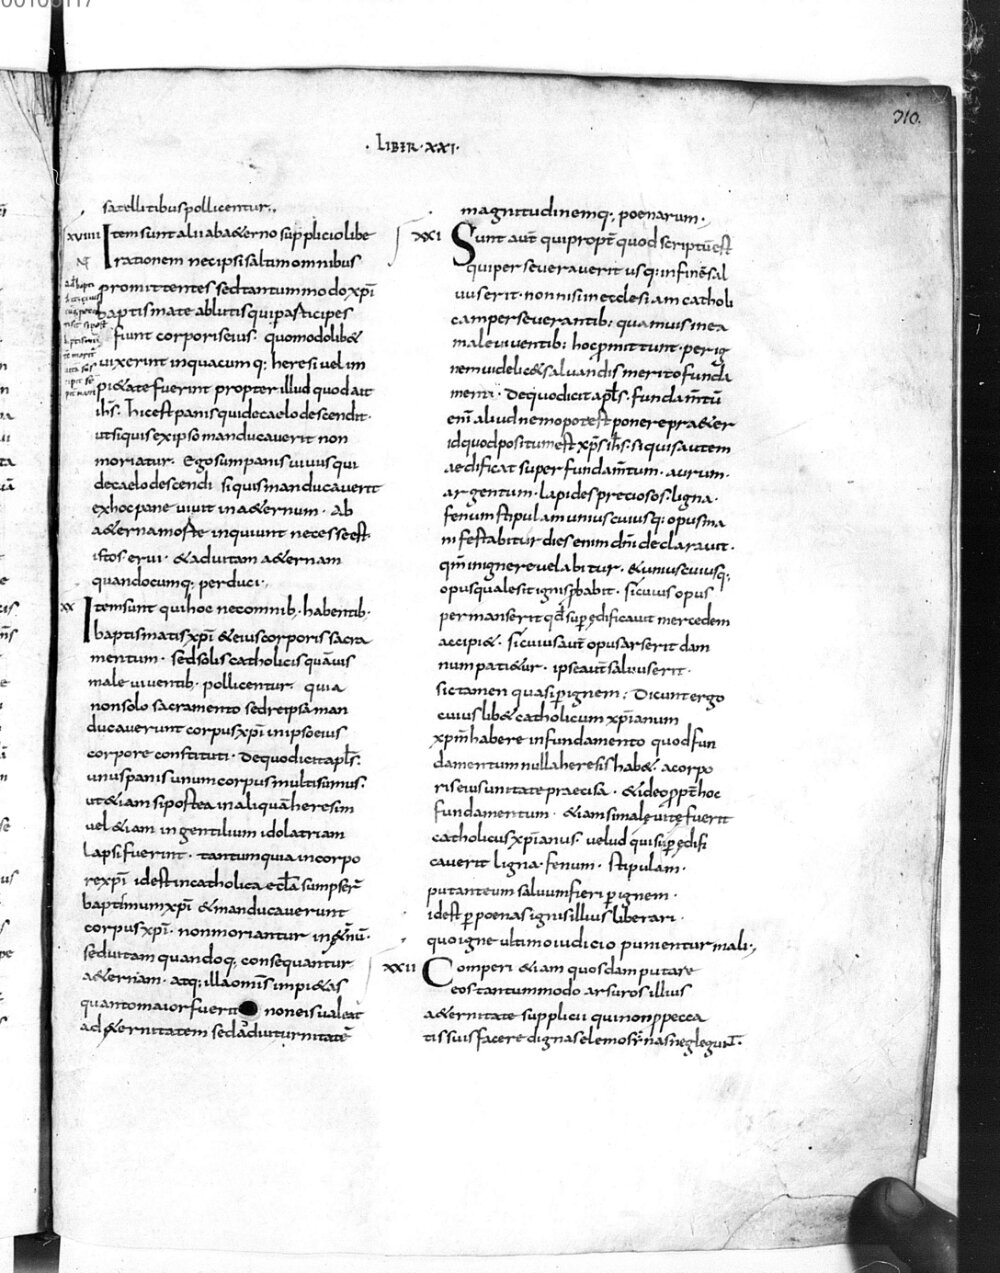 310.
· LIBER · XXI ·
satellitibus pollicentur.,
xviiii Item sunt alii ab aet̄erno supplicio libe
rationem nec ipsi saltim omnibus
promittentes sed tantummodo xp̄i
baptismate ablutis qui participes
fiunt corporis eius · quomodolibet
uixerint in quacumq; heresi uel im
pietate fuerint propter illud quod ait
ih̄s · hic est panis qui de caelo descendit ·
ut si quis ex ipso manducauerit non
moriatur · Ego sum panis uiuus qui
de caelo descendi si quis manducauerit
ex hoc pane uiuit in aeternum · Ab
aeterna morte inquiunt necesse est
istos erui · & ad uitam aeternam
quandocumq; perduci.,
xx Item sunt qui hoc nec omnib· habentib·
baptismatis xp̄i & eius corporis sacra
mentum · sed solis catholicis quāuis
male uiuentib· pollicentur · quia
non solo sacramento sed re ipsa man
ducauerunt corpus xp̄i in ipso eius
corpore constituti · De quo dicit apl̄s ·
unus panis unum corpus multi sumus ·
ut & iam si postea in aliquā heresim
uel & iam in gentilium idolatriam
lapsi fuerint · tantum quia in corpo
re xp̄i id est in catholica eccl̄a sumpser̄
baptismum xp̄i & manducauerunt
corpus xp̄i · non moriantur in aet̄nū ·
sed uitam quandoq; consequantur
aeternam · atq; illa om̄is impietas
quanto maior fuerit non eis ualeat
ad aeternitatem sed ad diuturnitatē
magnitudinemq; poenarum ·
xxi Sunt aut̄ qui propt̄ quod scriptū est
qui perseuerauerit usq; in finē sal
uus erit · non nisi in ecclesiam catholi
cam perseuerantib; quamuis in ea
male uiuentib; hoc p̄mittunt · per ig
nem uidelicet saluandis merito funda
menti · De quo dicit apl̄s · fundam̄tū
eni͞ aliud nemo potest ponere praeter
id quod positum est xp̄s ih̄s · si quis autem
aedificat super fundam̄tum · aurum ·
argentum · lapides preciosos · ligna ·
fenum stipulam unius cuiusq; opus ma
nifestabitur dies enim dn̄i declarauit ·
qm̄ in igne reuelabitur · & unius cuiusq;
opus quale sit ignis p̄babit · si cuius opus
permanserit qd̄ sup̄ ędificauit mercedem
accipiet · si cuius aut̄ opus arserit dam
num patietur · ipse aut̄ saluus erit ·
sic tamen quasi p̄ ignem ; Dicunt ergo
cuiuslibet catholicum xp̄ianum
xp̄m habere in fundamento quod fun
damentum nulla heresis habet · a corpo
ris eius unitate praecisa · & ideo ppt̄ hoc
fundamentum · & iam si malę uitę fuerit
catholicus xp̄ianus · uelud qui sup̄ ędifi
cauerit ligna · fenum · stipulam ·
putant eum saluum fieri p̄ ignem ·
id est p̄ poenas ignis illius liberari ·
quo igne ultimo iudicio punientur mali.,
xxii Comperi & iam quosdam putare
eos tantummodo arsuros illius
aeternitate supplicii qui non p̄ pecca
tis suis facere dignas elemosynas neglegunt̄ ·